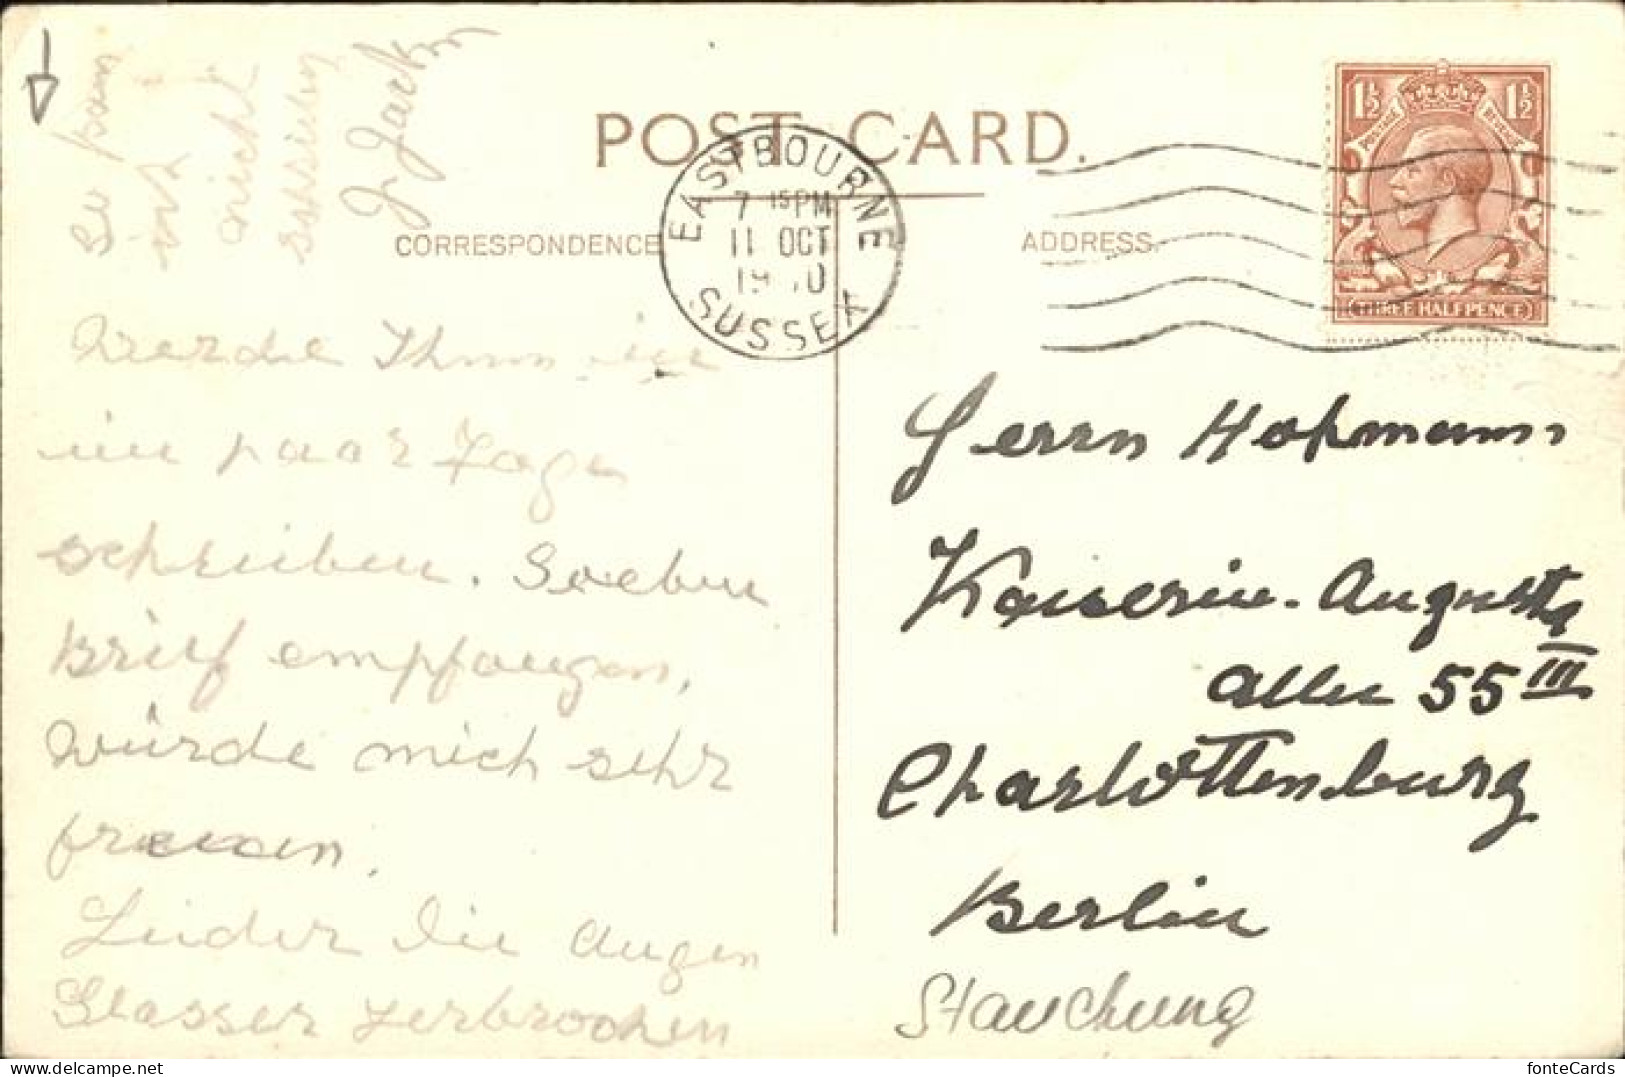 POST CARD.
CORRESPONDENCE
ADDRESS.
EASTBOURNE
7 15 PM
11 OCT
SUSSEX
1½ 1½
POSTAGE REVENUE
THREE HALFPENCE
Werde Ihnen
in paar Tagen
schreiben. Soeben
Brief empfangen,
würde mich sehr
freuen.
Leider die Augen
Glasser zerbrochen
nicht
Herrn Hofmann
Kaiserin-Augusta
Allee 55 III
Charlottenburg
Berlin
Stauchung
fonteCards